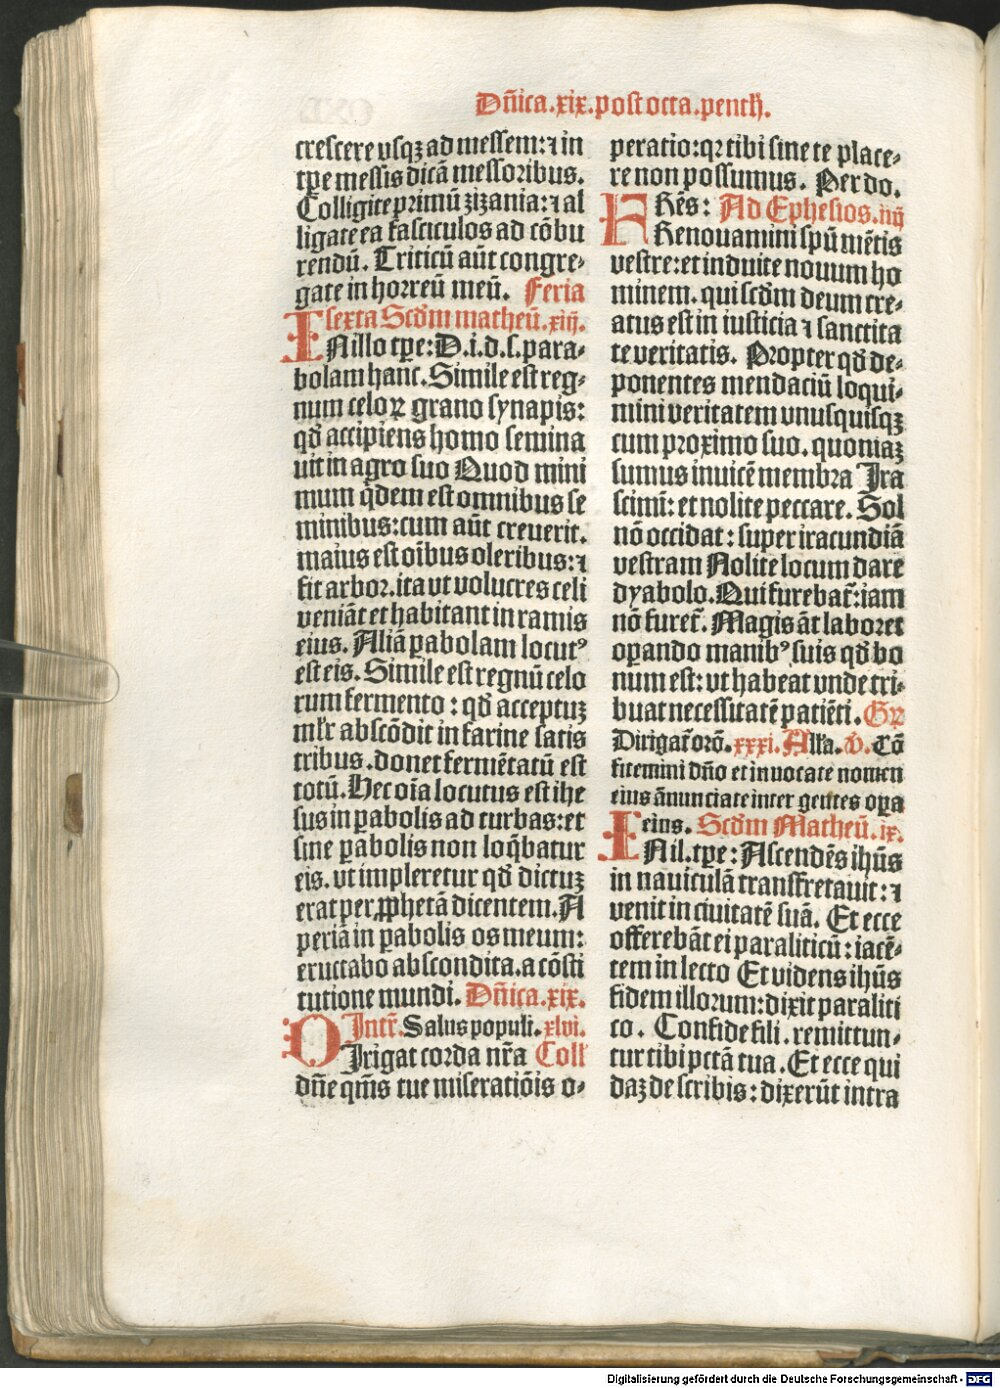 Dñica.xix.post octa.penth̄.
crescere vsqꝫ ad messem: ⁊ in
tꝑe messis dicā messoribus.
Colligite primū zizania: ⁊ al
ligate ea fasciculos ad cōbu
rendū. Triticū aūt congre⸗
gate in horreū meū. Feria
sexta Scd̄m matheū.xiij.
INillo tꝑe: D.i.d.s.para⸗
bolam hanc. Simile est reg⸗
num celoꝝ grano synapis:
qd̄ accipiens homo semina
uit in agro suo Quod mini
mum q̄dem est omnibus se
minibus: cum aūt creuerit.
maius est oībus oleribus: ⁊
fit arbor. ita vt volucres celi
veniāt et habitant in ramis
eius. Aliā ꝑabolam locutꝰ
est eis. Simile est regnū celo
rum fermento: qd̄ acceptuꝫ
ml̄r abscōdit in farine satis
tribus. donet fermētatū est
totū. Hec oīa locutus est ihe
sus in ꝑabolis ad turbas: et
sine ꝑabolis non loq̄batur
eis. vt impleretur qd̄ dictuꝫ
erat per ꝓphetā dicentem. A
periā in ꝑabolis os meum:
eructabo abscondita. a cōsti
tutione mundi. Dñica.xix.
Intr̄. Salus populi.xlvi.
DIrigat corda nr̄a Coll̄
dn̄e qm̄s tue miseratiōis o⸗
peratio: qꝛ tibi sine te place⸗
re non possumus. Per do.
FRēs: Ad Ephesios.iiij
Renouamini spū mētis
vestre: et induite nouum ho
minem. qui scd̄m deum cre⸗
atus est in iusticia ⁊ sanctita
te veritatis. Propter qd̄ de⸗
ponentes mendaciū loqui⸗
mini veritatem vnusquisqꝫ
cum proximo suo. quoniaꝫ
sumus inuicē membra Ira
scimī: et nolite peccare. Sol
nō occidat: super iracundiā
vestram Nolite locum dare
dyabolo. Qui furebat̄: iam
nō furet̄. Magis āt laboret
oꝑando manibꝰ suis qd̄ bo
num est: vt habeat vnde tri⸗
buat necessitatē patiēti. Gꝝ
Dirigat̄ orō. xxxi. All̄a. v̄. Cō
fitemini dn̄o et inuocate nomen
eius ānunciate inter gentes oꝑa
eius. Scd̄m Matheū.ix.
INil.tꝑe: Ascendēs ihūs
in nauiculā transfretauit: ⁊
venit in ciuitatē suā. Et ecce
offerebāt ei paraliticū: iacē⸗
tem in lecto Et videns ihūs
fidem illorum: dixit paraliti
co. Confide fili. remittun⸗
tur tibi pctā tua. Et ecce qui
daꝫ de scribis: dixerūt intra
Digitalisierung gefördert durch die Deutsche Forschungsgemeinschaft - DFG